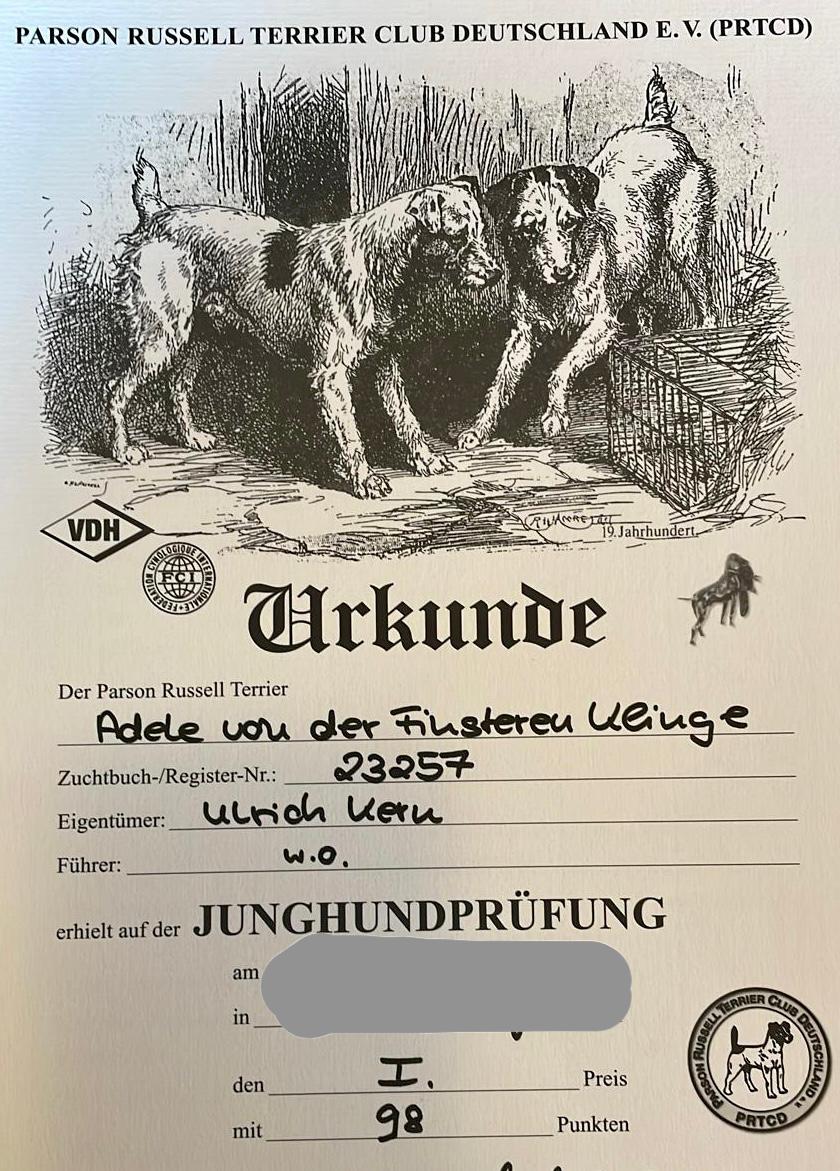 PARSON RUSSELL TERRIER CLUB DEUTSCHLAND E. V. (PRTCD)
19. Jahrhundert.
VDH
FEDERATION CYNOLOGIQUE INTERNATIONALE
FCI
Urkunde
Der Parson Russell Terrier
Adele von der Finsteren Klinge
Zuchtbuch-/Register-Nr.: 23257
Eigentümer: Ulrich Kern
Führer: w.o.
erhielt auf der JUNGHUNDPRÜFUNG
am
in
den I. Preis
mit 98 Punkten
PARSON RUSSELL TERRIER CLUB DEUTSCHLAND e.V.
PRTCD